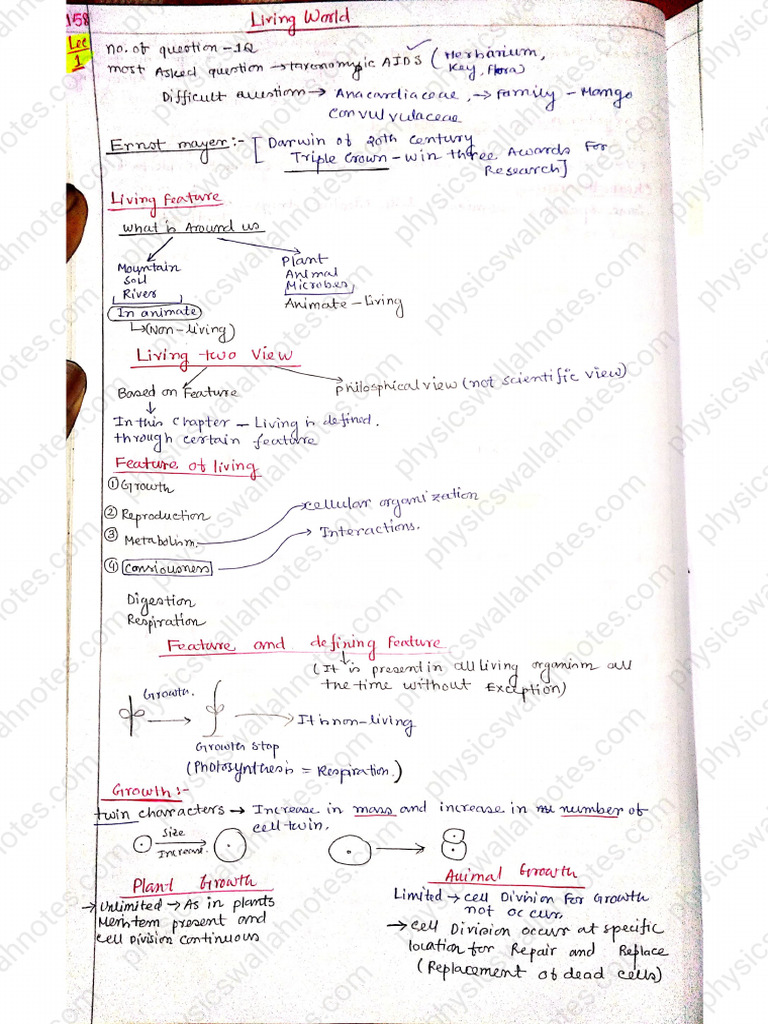 158
Living World
Lec
1
no. of question - 1Q
most Asked question → taxonomyic AIDS ( Herbarium,
Key, flora)
Difficult question → Anacardiaceae, → family - Mango
Convulvulaceae
Ernst mayer:- [ Darwin of 20th century
Triple Crown - win three Awards For
Research]
Living feature
what is Around us
Mountain
Soil
River
In animate
↳ (Non-living)
Plant
Animal
Microbes
Animate - Living
Living - two View
Based on Feature
Philosphical view (not scientific view)
In this chapter - Living is defined.
through certain feature
Feature of living
① Growth
② Reproduction
③ Metabolism.
cellular organization
④ Consiousness
Interactions.
Digestion
Respiration
Feature and defining feature
(It is present in all living organism all
the time without Exception)
Growth.
It is non-living
Growth stop
(Photosynthesis = Respiration.)
Growth:-
twin characters → Increase in mass and increase in number of
cell twin.
Size
Increase.
Plant Growth
→ Unlimited → As in plants
Meristem present and
cell Division continuous
Animal Growth
Limited → cell Division for Growth
not occur.
→ cell Division occurs at specific
location for Repair and Replace
(Replacement of dead cells)
physicswallahnotes.com